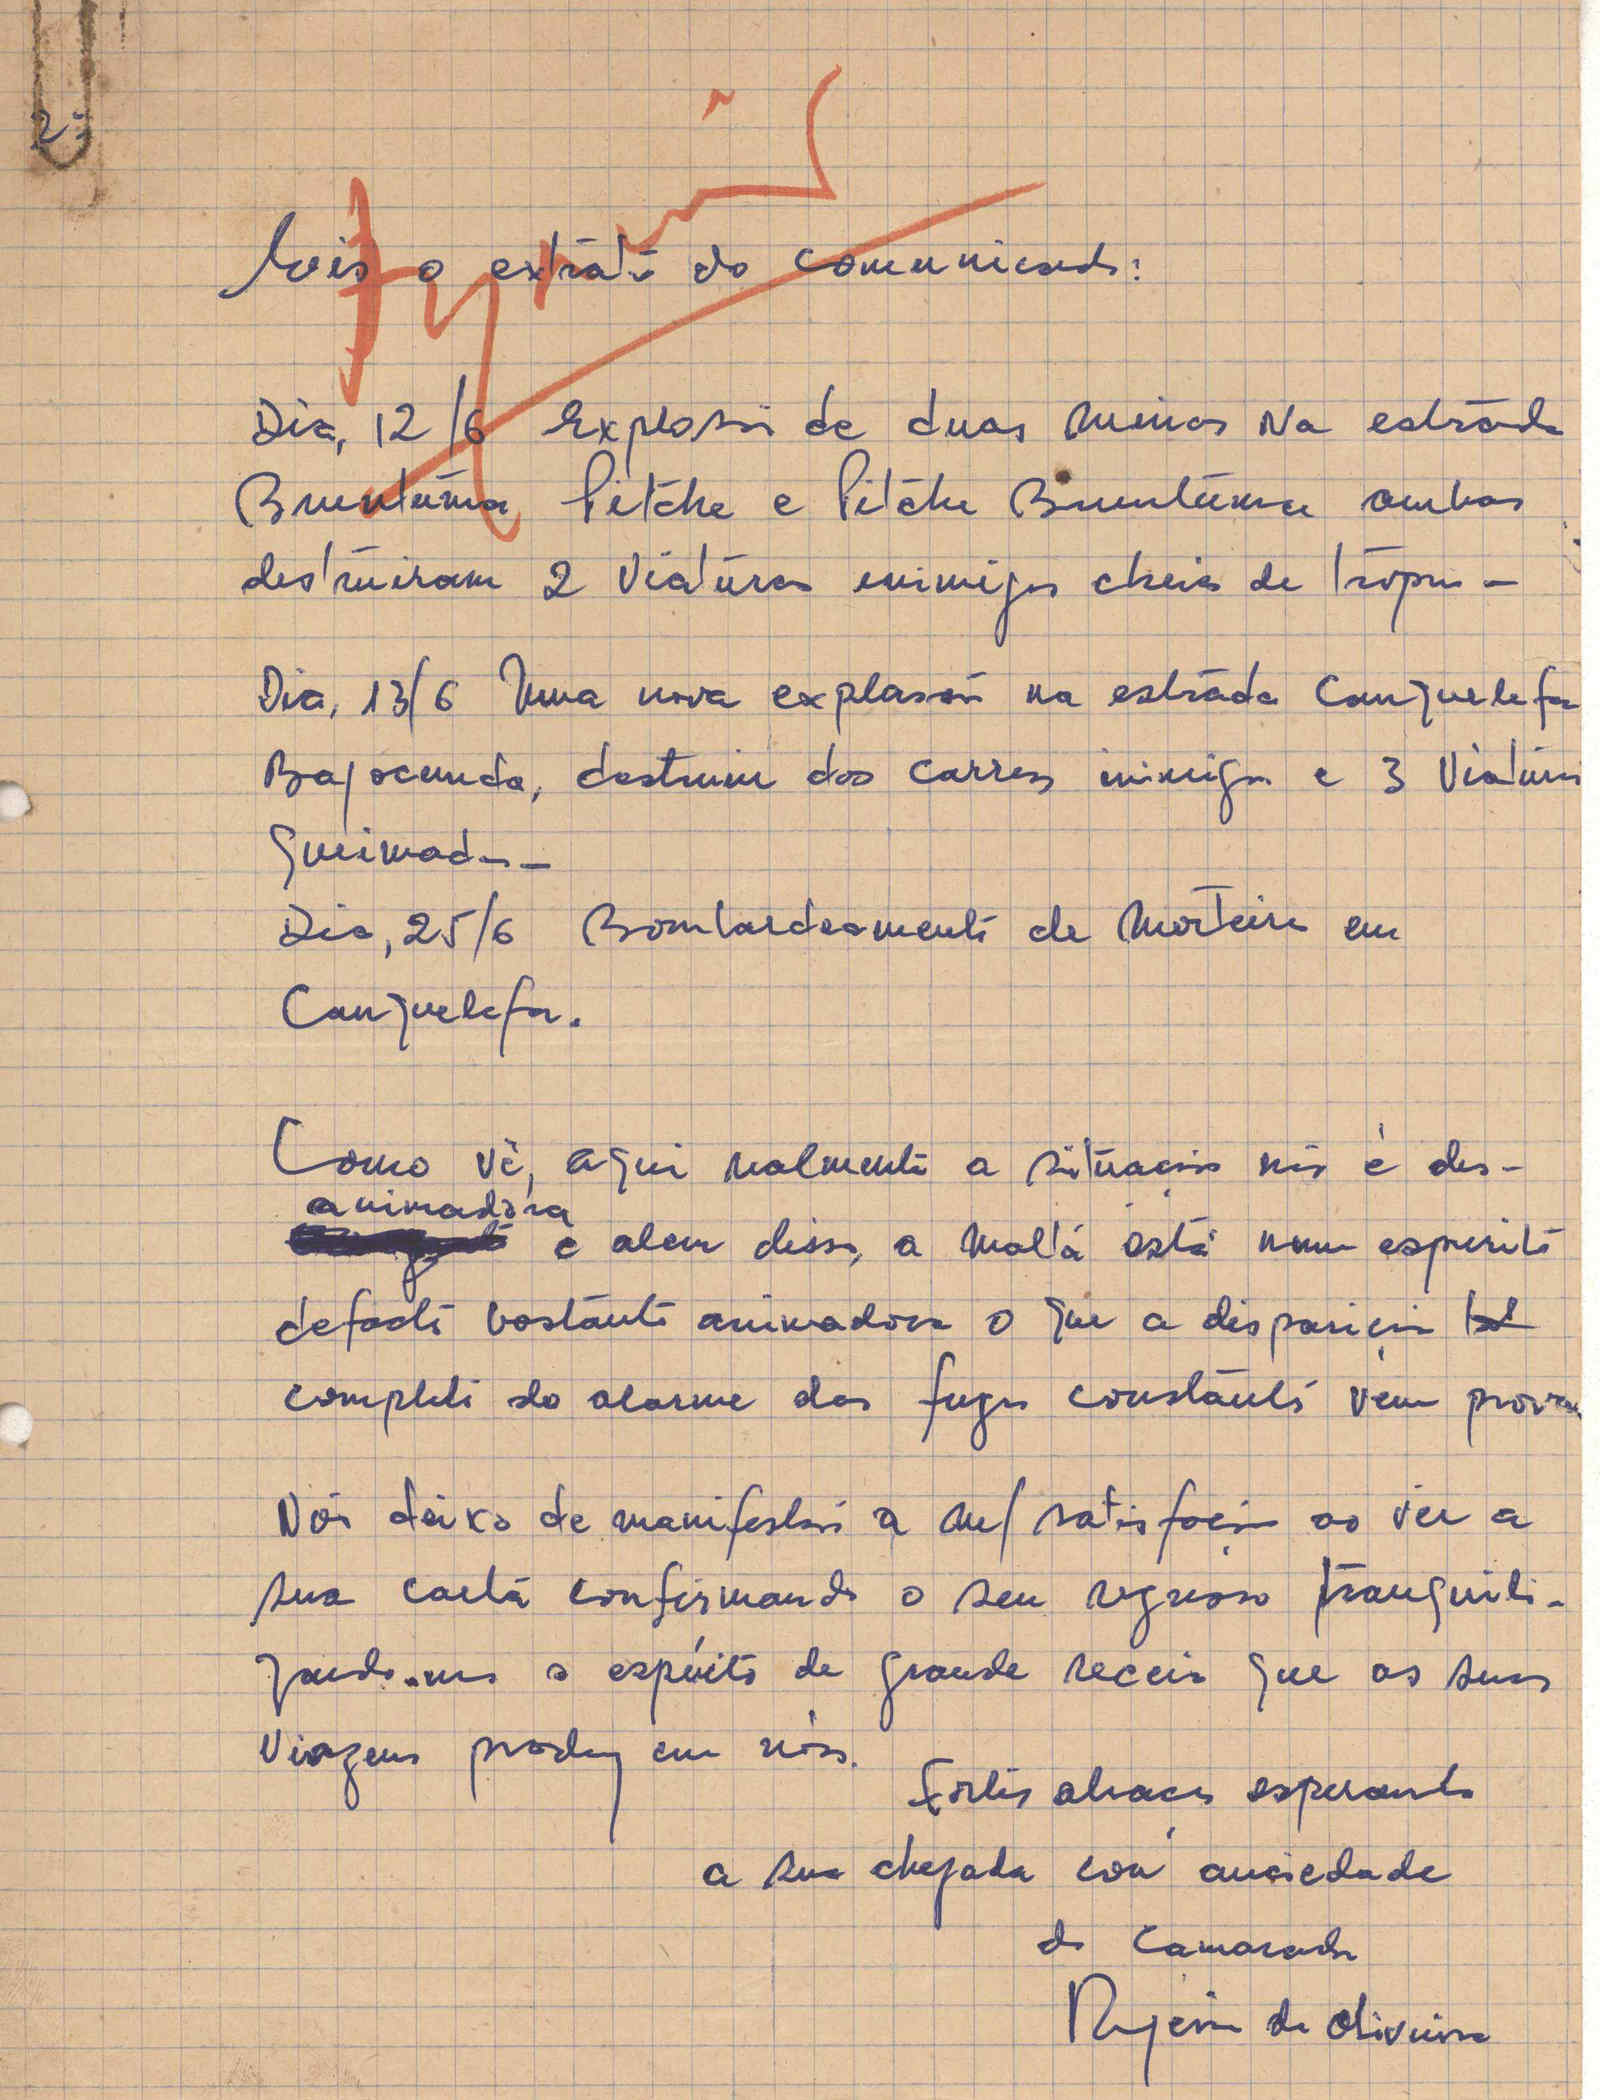 2:
Eis o extrato do comunicado:
Dia, 12/6 Explosão de duas minas na estrada
Buruntuma Pitche e Pitche Buruntuma ambas
destruiram 2 viaturas inimigas cheias de tropas –
Dia, 13/6 Uma nova explosão na estrada Canquelefa
Bajocunda, destruiu dos carros inimigos e 3 viaturas
queimadas –
Dia, 25/6 Bombardeamento de morteiro em
Canquelefa.
Como vê, aqui realmente a situação não é des-
animadora
e alem disso, a malta está num espirito
defacto bastante animadora o que a disparição
completa do alarme das fugas constantes vêm provar
Não deixo de manifestar a m/ satisfação ao vêr a
sua carta confirmando o seu regresso tranquili-
zando-nos o espírito de grande receio que as suas
viagens produz em nós.
Fortes abraços esperando
a sua chegada com ansiedade
do Camarada
de Oliveira